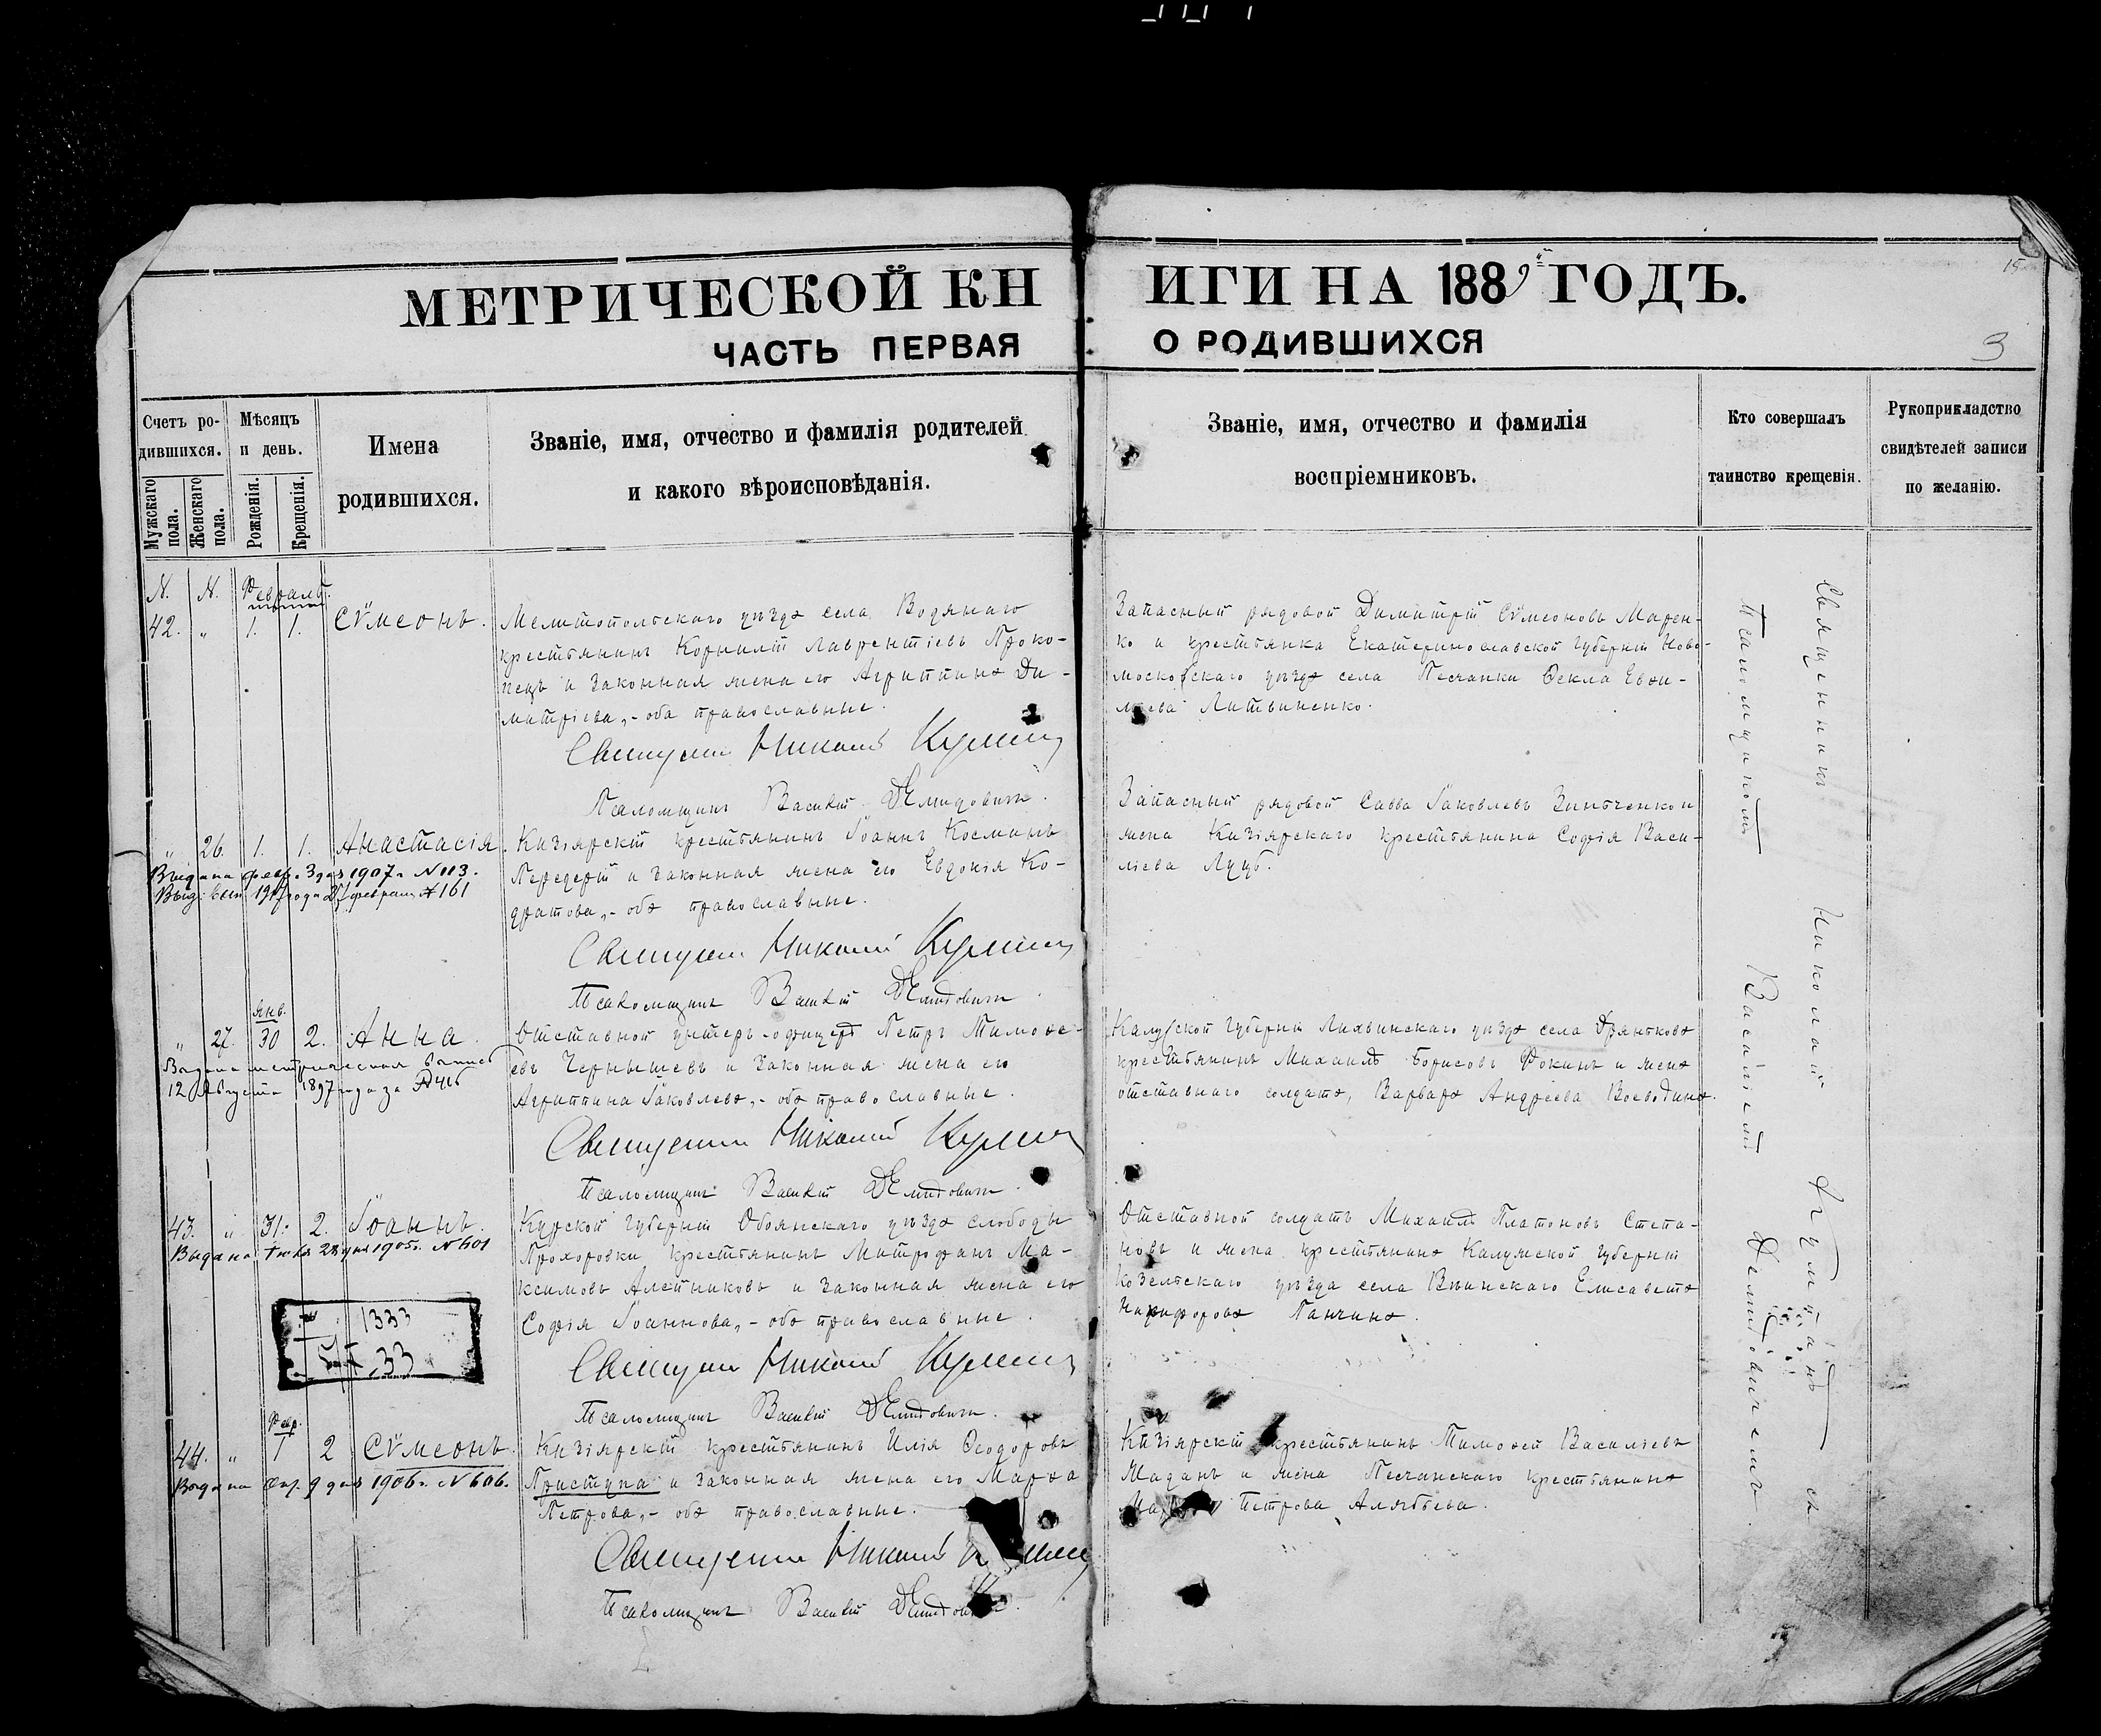 МЕТРИЧЕСКОЙ КНИГИ НА 1889й ГОДЪ.
15
ЧАСТЬ ПЕРВАЯ О РОДИВШИХСЯ
3
Счетъ родившихся.
Мужскаго пола.
Женскаго пола.
Мѣсяцъ и день.
Рожденія.
Крещенія.
Имена родившихся.
Званіе, имя, отчество и фамилія родителей
и какого вѣроисповѣданія.
Званіе, имя, отчество и фамилія
воспріемниковъ.
Кто совершалъ
таинство крещенія.
Рукоприкладство
свидѣтелей записи
по желанію.
N. N. Февраль.
42. " 1. 1. Сѵмеонъ.
Мелитопольскаго уѣзда села Водянаго
крестьянинъ Корнилій Лаврентіевъ Проко-
пецъ и законная жена его Агриппина Ди-
митріева,- оба православные.
Священникъ Николай
Псаломщикъ Василій Демидовичъ.
Запасный рядовой Димитрій Сѵмеоновъ Марен-
ко и крестьянка Екатеринославской Губерніи Ново-
московскаго уѣзда села Песчанки Ѳекла Евѳи-
міева Литвиненко.
" 26. 1. 1. Анастасія.
Выдана февр. 3 дня 1907 г. N 113.
февраля № 161
Кизіярскій крестьянинъ Іоаннъ Косминъ
Передерій и законная жена его Евдокія Ко-
дратова,- оба православные.
Священникъ Николай
Псаломщикъ Василій Демидовичъ.
Запасный рядовой Савва Іаковлевъ Зинченко и
жена Кизіярскаго крестьянина Софія Васи-
ліева Луцъ.
Янв.
" 27. 30 2. Анна.
Выдана метрическая выпись
12 Августа 1897 года за № 416
Отставной унтеръ-офицеръ Петръ Тимоѳе-
евъ Чернышевъ и законная жена его
Агриппина Іаковлева,- оба православные.
Священникъ Николай
Псаломщикъ Василій Демидовичъ.
Калужской Губерніи Лихвинскаго уѣзда села
крестьянинъ Михаилъ Борисовъ Фокинъ и жена
отставнаго солдата, Варвара Андреева Воеводина.
43. " 31. 2. Іоаннъ.
Выдана 28 дня 1905 г. N 601
1333
33
Курской Губерніи Обоянскаго уѣзда слободы
Прохоровки крестьянинъ Митрофанъ Ма-
ксимовъ Алейниковъ и законная жена его
Софія Іоаннова,- оба православные.
Священникъ Николай
Псаломщикъ Василій Демидовичъ.
Отставной солдатъ Михаилъ Платоновъ Степа-
новъ и жена крестьянина Калужской Губерніи
Козельскаго уѣзда села Елисавета
Никифорова Панчина.
Февр.
44. " 1 2 Сѵмеонъ.
Выдана 9 дня 1906 г. N 606.
Кизіярскій крестьянинъ Илія Ѳеодоровъ
Приступа и законная жена его Марѳа
Петрова,- оба православные.
Священникъ Николай
Псаломщикъ Василій
Кизіярскій крестьянинъ Тимоѳей Василіевъ
Шаданъ и жена Песчанскаго крестьянина
Петрова Алябьева.
Священникъ Николай
Псаломщикомъ Василіемъ Демидовичемъ.